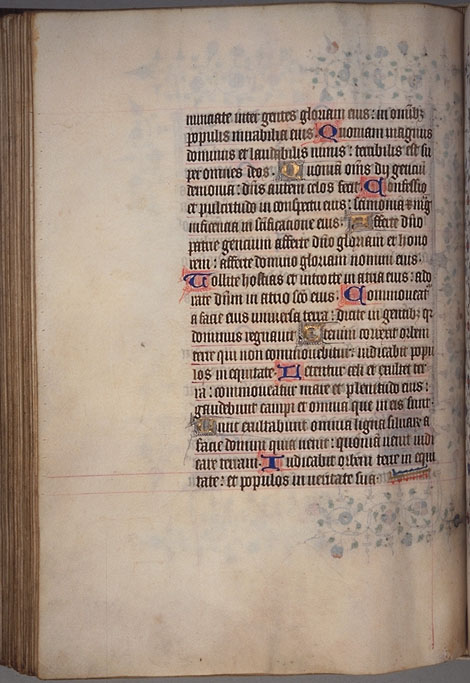 nunciate inter gentes gloriam eius: in omnibz
populis mirabilia eius. Quoniam magnus
dominus et laudabilis nimis: terribilis est su
per omnes deos. Quoniā omēs dij gentiū
demonia: dñs autem celos fecit. Confessio
et pulcritudo in conspectu eius: scimonia et mag
nificencia in scificatione eius. Afferte dño
patrie gencium afferte dño gloriam et hono
rem: afferte domino gloriam nomini eius.
Tollite hostias et introite in atria eius: ado
rate dñm in atrio sco eius. Commoueat͛
a facie eius uniuersa terra: dicite in gentibz q
dominus regnauit. Etenim correxit orbem
terre qui non commouebitur: iudicabit popu
los in equitate. Letentur celi et exultet ter
ra: commoueatur mare et plenitudo eius:
gaudebunt campi et omnia que in eis sunt.
Tunc exultabunt omnia ligna siluarum a
facie domini quia uenit: quoniā uenit iudi
care terram. Iudicabit orbem terre in equi
tate: et populos in ueritate sua.